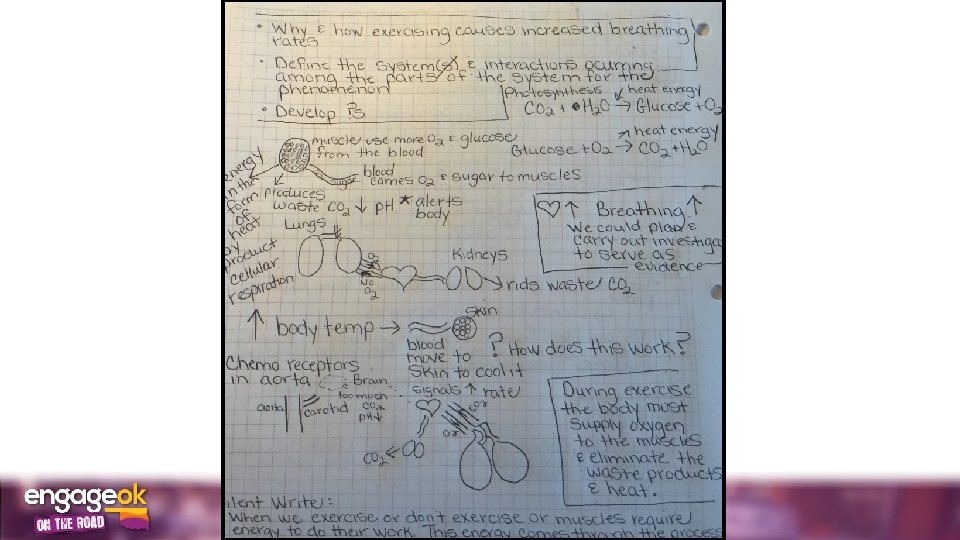 • Why & how exercising causes increased breathing
rates
• Define the system(s) & interactions ocurring
among the parts of the system for the
phenomenon
• Develop ?s
Photosynthesis ↙ heat energy
CO2 + H2O → Glucose + O2
↗ heat energy
Glucose + O2 → CO2 + H2O
muscle use more O2 & glucose
from the blood
sugar
blood
carries O2 & sugar to muscles
energy
in the
form
of
heat
by
product
cellular
respiration
produces
waste CO2 ↓ pH * alerts
body
♡↑ Breathing ↑
We could plan &
carry out investiga
to serve as
evidence
Lungs
Kidneys
O2
→ rids waste CO2
↑ body temp →
Skin
blood
move to
skin to cool it
? How does this work?
Chemo receptors
in aorta & Brain
too much
CO2
pH↓
aorta
carotid
signals ↑ rate
CO2
During exercise
the body must
supply oxygen
to the muscles
& eliminate the
waste products
& heat.
ilent Write:
When we exercise or don't exercise or muscles require
energy to do their work. This energy comes through the process
engageok
ON THE ROAD